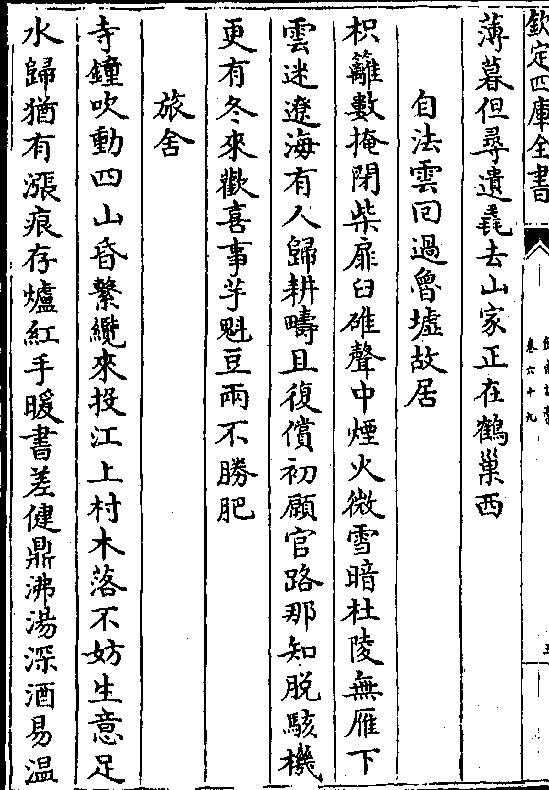 欽定四庫全書
卷六十九
薄暮但尋遺毳去山家正在鶴巢西
自法雲囘過魯墟故居
枳籬數掩閉柴扉臼碓聲中煙火微雪暗杜陵無雁下
雲迷遼海有人歸耕疇且復償初願官路那知脱駭機
更有冬來歡喜事芋魁豆兩不勝肥
旅舍
寺鐘吹動四山昏繫纜來投江上村木落不妨生意足
水歸猶有漲痕存爐紅手暖書差健鼎沸湯深酒易温